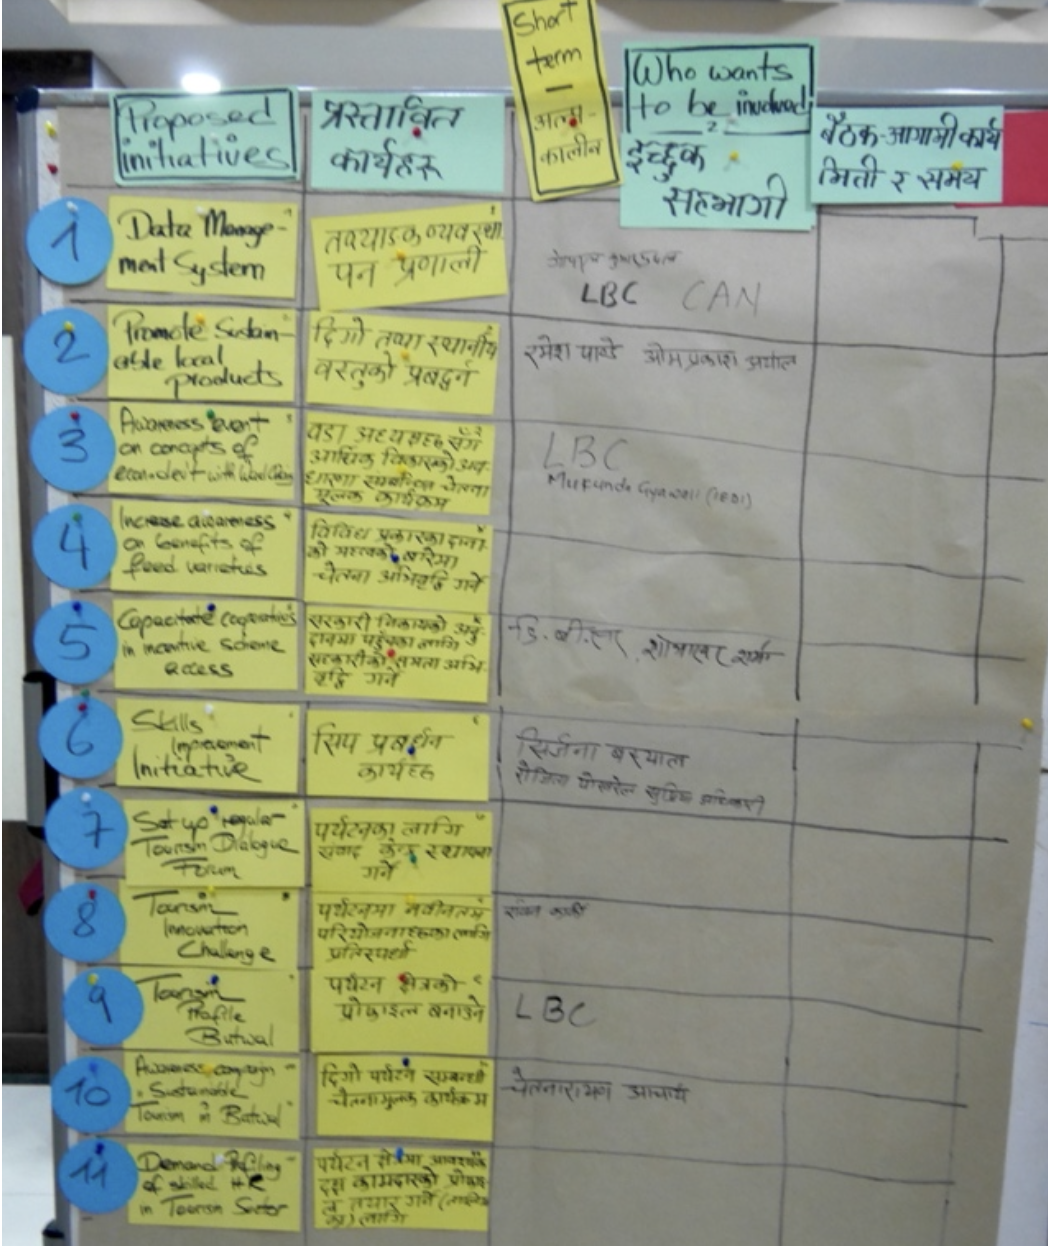 Short
term
—
अल्प-
कालीन
Proposed
initiatives
प्रस्तावित
कार्यहरू
Who wants
to be involved
इच्छुक
सहभागी
बैठक-आगामी कार्य
मिती र समय
1
Data Manage-
ment System
तथ्याङ्क व्यवस्था
पन प्रणाली
LBC CAN
2
Promote Sustain-
able local
products
दिगो तथा स्थानीय
वस्तुको प्रबर्द्धन
रमेश पाण्डे ओम प्रकाश अर्याल
3
Awareness event
on concepts of
econ.devt with
वडा अध्यक्षहरु सँग
आर्थिक विकासको अव-
धारणा सम्बन्धित चेतना
मूलक कार्यक्रम
LBC
Mukunda Gyawali
4
Increase awareness
on benefits of
feed varieties
विविध प्रकारका दाना-
को महत्वको बारेमा
चेतना अभिवृद्धि गर्ने
5
Capacitate cooperatives
in incentive scheme
access
सरकारी निकायको अनु-
दानमा पहुँचका लागि
सहकारीको क्षमता अभि-
वृद्धि गर्ने
शर्मा
6
Skills
Improvement
Initiative
सिप प्रबर्धन
कार्यहरु
सिर्जना बरयाल
रोजिना पोखरेल सुप्रिया अधिकारी
7
Set up regular
Tourism Dialogue
Forum
पर्यटनका लागि
संवाद केन्द्र स्थापना
गर्ने
8
Tourism
Innovation
Challenge
पर्यटनमा नवीनतम
परियोजनाहरुका लागि
प्रतिस्पर्धा
कार्की
9
Tourism
Profile
Butwal
पर्यटन क्षेत्रको
प्रोफाइल बनाउने
LBC
10
Awareness campaign
Sustainable
Tourism in Butwal
दिगो पर्यटन सम्बन्धी
चेतनामूलक कार्यक्रम
चेतनारायण आचार्य
11
Demand Profiling
of skilled HR
in Tourism Sector
पर्यटन क्षेत्रमा आवश्यक
दक्ष कामदारको प्रोफाइ
ल तयार गर्ने (तालिम
का) लागि